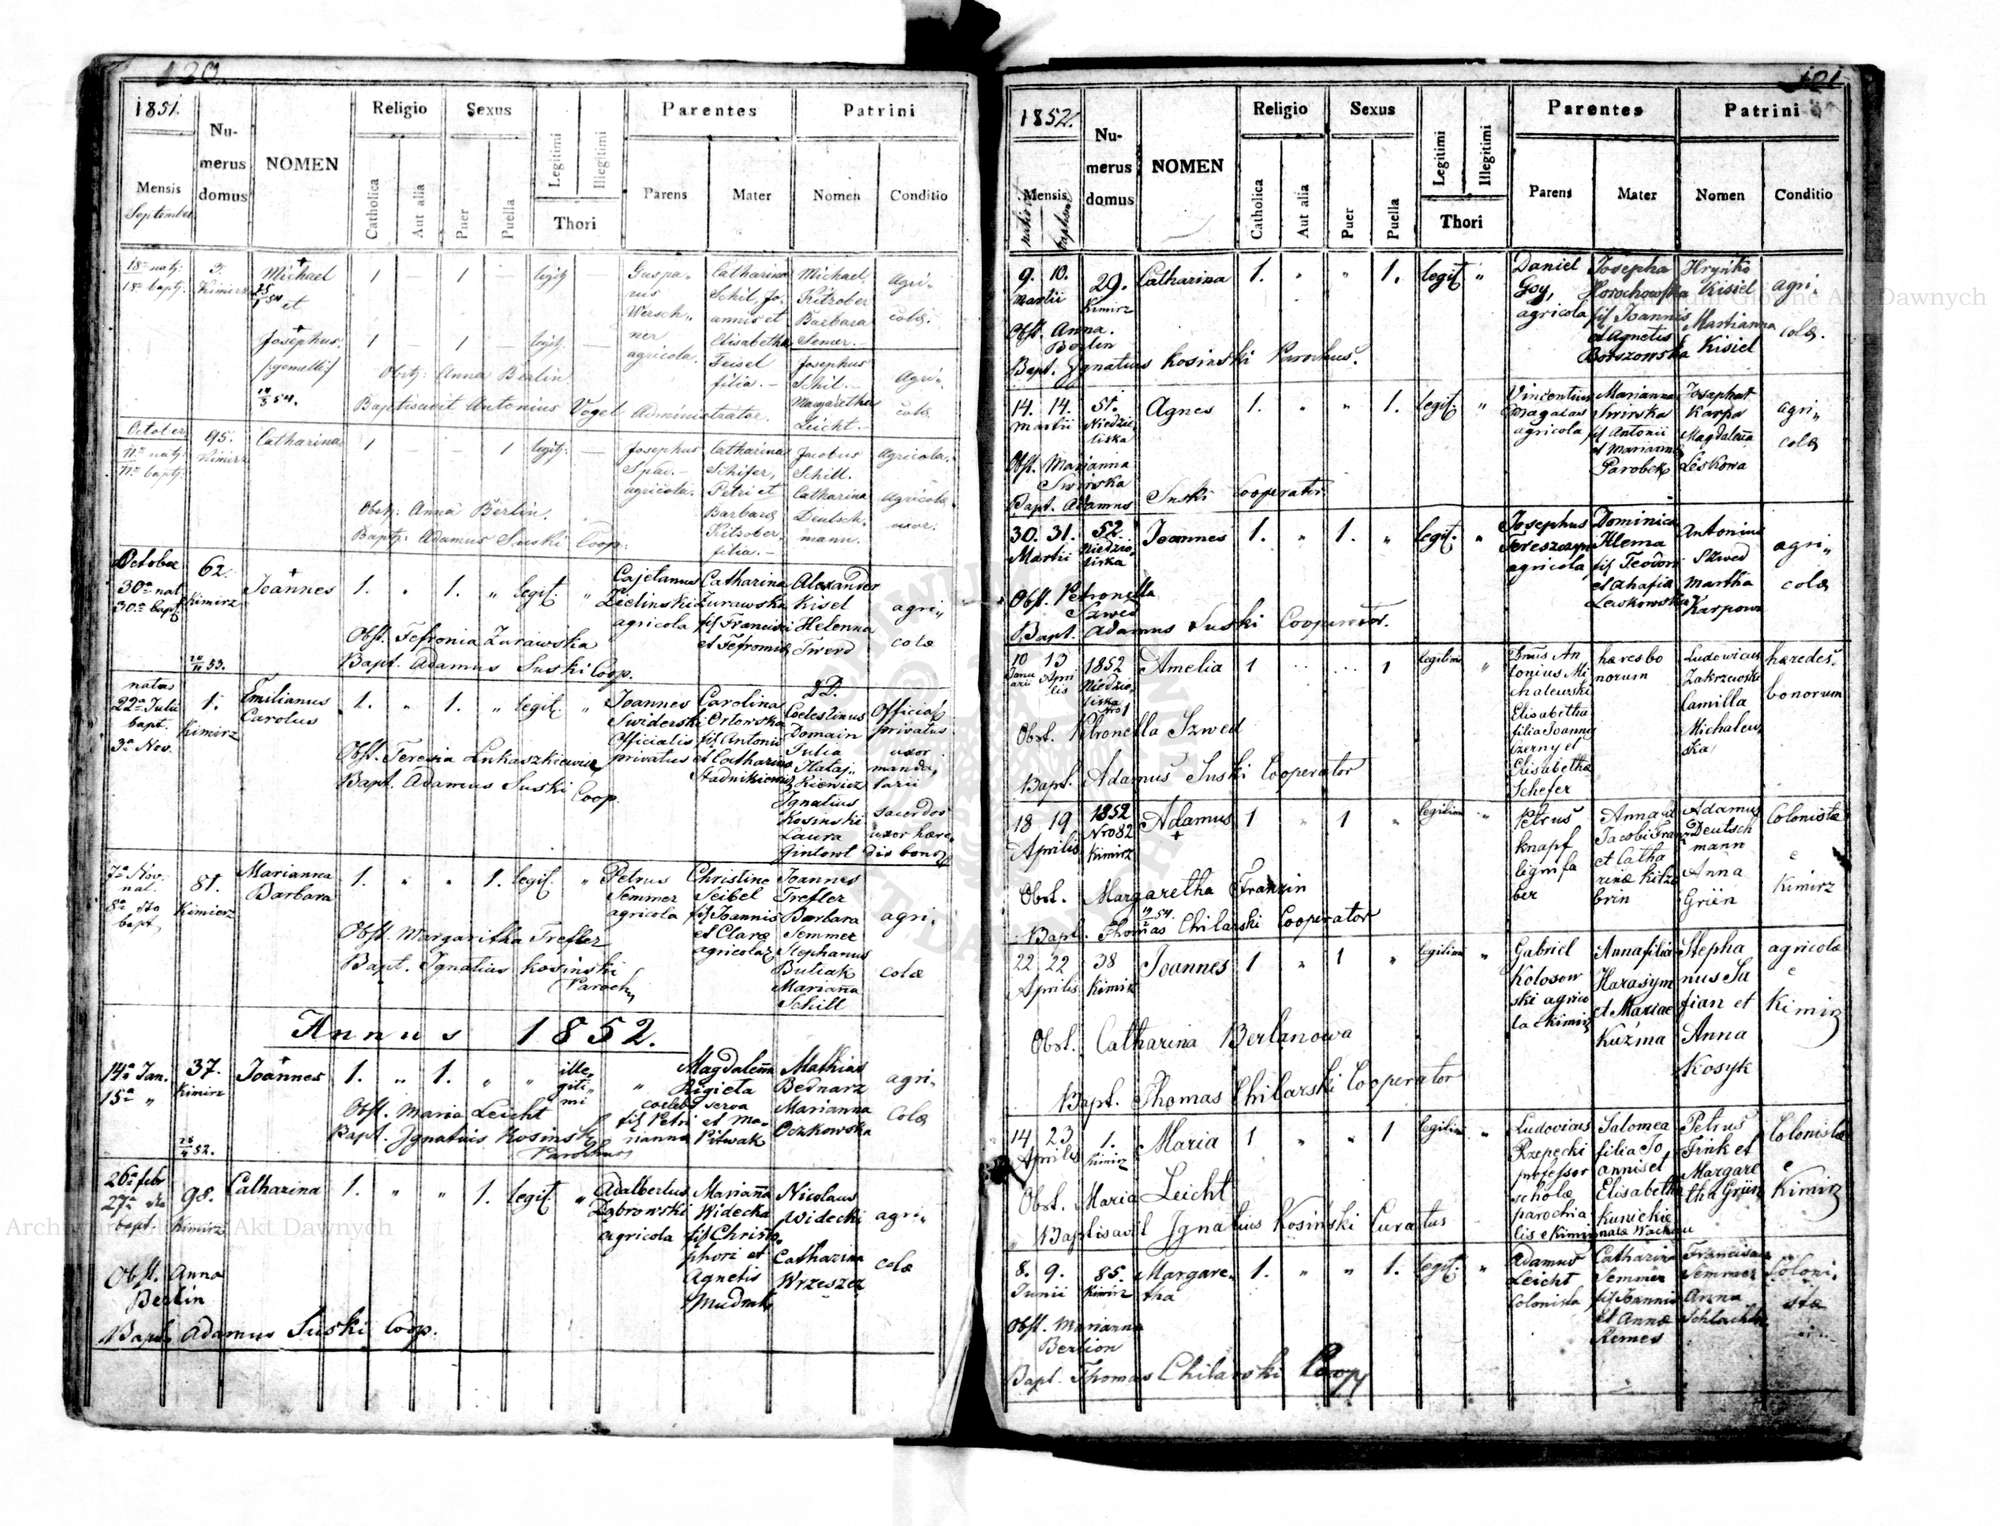 120.
1851.
Mensis
September
Numerus domus
NOMEN
Religio
Catholica
Aut alia
Sexus
Puer
Puella
Legitimi
Illegitimi
Thori
Parentes
Parens
Mater
Patrini
Nomen
Conditio
18ª natȷ
18ª baptȷ
3.
Kimirz
Michael
et
Josephus
(gemelli)
54.
1 — 1 — legitȷ —
1 — 1 — legitȷ —
Gaspa„
rus
Wersch„
ner
agricola.
Catharina
Schil, Jo„
annis et
Elisabetha
Feisel
filia. —
Michael
Kitzober
Barbara
Semer. —
Josephus
Schil. —
Margaretha
Leicht. —
Agri„
colæ.
Agri„
colæ
Obstȷ: Anna Berlin
Baptisavit Antonius Vogel Administrator.
October
11ª natȷ
11ª baptȷ
95.
Kimirz
Catharina
1 — — 1 legitȷ —
Josephus
Spai. —
agricola.
Catharina
Schifer,
Petri et
Barbara
Kitzober
filia. —
Jacobus
Schill.
Catharina
Deutsch„
mann.
Agricola.
Agricolæ
uxor.
Obstȷ: Anna Berlin.
Baptȷ: Adamus Suski Coop.
October
30ª nat
30ª bapt
62.
Kimirz
53.
Joannes
1. „ 1. „ legit. „
Cajetanus
Zielinski
agricola
Catharina
Zurawska
fil Francisci
et Tefromia
Alexander
Kisel
Helenna
Twerd
agri„
colæ
Obst. Tefronia Zurawska
Bapt. Adamus Suski Coop.
natus
22ª Julii
bapt.
3ª Nov.
1.
Kimirz
Emilianus
Carolus
1. „ 1. „ legit. „
Joannes
Swiderski
Officialis
privatus
Carolina
Orlowska
fil Antonii
et Catharina
Stadnikiewicz
DD.
Coelestinus
Domain
Julia
Hataj„
Kiewicz
Ignatius
Kosinski
Laura
Gintowt
Officialis
privatus
uxor
manda„
tarii
sacerdos
uxor hære„
dis bonor
Obst. Teresia Lukaszkiewicz
Bapt. Adamus Suski Coop.
7ª Nov.
nat.
8ª dto
bapt.
81.
Kimierz
Marianna
Barbara
1. „ „ 1. legit. „
Petrus
Semmer
agricola
Christine
Seibel
fil Joannis
et Claræ
agricolæ
Joannes
Trefler
Barbara
Semmer
Stephanus
Butiak
Marianna
Schill
agri„
colæ
Obst. Margaritha Trefler
Bapt. Ignatius Kosinski
Paroch
Annus 1852.
14ª Jan.
15ª „
37.
Kimirz
52.
Joannes
1. „ 1. „ „
ille„
giti„
mi
„
Magdalena
Rigieta
coelebs serva
fil Petri et Ma„
rianna Pitwak
Mathias
Bednarz
Marianna
Oczkowska
agri„
colæ
Obst. Maria Leicht
Bapt. Ignatius Kosinski
Parochus
26ª febr
27ª dto
bapt.
98.
Kimirz
Catharina
1. „ „ 1. legit. „
Adalbertus
Dąbrowski
agricola
Marianna
Widecka
fil Christo„
phori et
Agnetis
Mudrak
Nicolaus
Widecki
Catharina
Wrzeszcz
agri„
colæ
Obst. Anna
Berlin
Bapt. Adamus Suski Coop.
121
1852.
Mensis
nativit
baptismi
Numerus domus
NOMEN
Religio
Catholica
Aut alia
Sexus
Puer
Puella
Legitimi
Illegitimi
Thori
Parentes
Parens
Mater
Patrini
Nomen
Conditio
9. 10.
Martii
29.
Kimirz
Catharina
1. „ „ 1. legit „
Daniel
Goy,
agricola
Josepha
Horochowska
fil Joannis
et Agnetis
Borszowska
Hryńko
Kisiel
Marianna
Kisiel
agri„
colæ.
Obst. Anna
Berlin
Bapt. Ignatius Kosinski Parochus.
14. 14.
Martii
51.
Niedzie„
liska
Agnes
1. „ „ 1. legit. „
Vincentius
Magalas
agricola
Marianna
Swirska
fil Antonii
et Marianna
Parobek
Josephat
Karpa
Magdalena
Leskowa
agri„
colæ
Obst. Marianna
Swirska
Bapt. Adamus Suski Cooperator
30. 31.
Martii
52.
Niedzie„
liska
Joannes
1. „ 1. „ legit. „
Josephus
agricola
Dominica
Klema
fil Teodori
et Ahafia
Leskowska
Antonius
Szwed
Martha
Karpowa
agri„
colæ
Obst. Petronella
Szwed
Bapt. Adamus Suski Cooperator.
10 13
Janu
arii
Apri
lis
1852
Niedzie„
liska
Nro 1
Amelia
1 .. .. 1 legitim „
Dnus An
tonius Mi
chalewski
Elisabetha
filia Joann
Czerny et
Elisabetha
Schefer
hæres bo
norum
Ludovicus
Zakrzewski
Camilla
Michalew
ska
hæredes
bonorum
Obst. Petronella Szwed
Bapt. Adamus Suski Cooperator
18 19
Aprilis
1852
Nro 82
Kimirz
Adamus
1 „ 1 „ legitim „
Petrus
Knapf
lignifa
ber
Anna fil
Jacobi Franz
et Catha
rinæ Kitzo
brin
Adamus
Deutsch
mann
Anna
Grün
Colonistæ
e
Kimirz
Obst. Margaretha Franzin
54.
Bapt. Thomas Chilarski Cooperator
22 22
Aprilis
38
Kimirz
Joannes
1 „ 1 „ legitim „
Gabriel
Kolosow
ski agrico
la e Kimirz
Anna filia
Harasym
et Mariae
Kuźma
Stepha
nus Sa
fian et
Anna
Kosyk
agricolæ
e
Kimirz
Obst. Catharina Berlanowa
Bapt. Thomas Chilarski Cooperator
14 23
Aprilis
1.
Kimirz
Maria
1 „ „ 1 legitim „
Ludovicus
Rzepecki
professor
scholæ
parochia
lis e Kimirz
Salomea
filia Jo
annis et
Elisabetha
Kunickie
nata Wachau
Petrus
Fink et
Margare
tha Grün
Colonistæ
e
Kimirz
Obst. Maria Leicht
Baptisavit Ignatius Kosinski Curatus
8. 9.
Junii
85.
Kimirz
Margare„
tha
1. „ „ 1. legit. „
Adamus
Leicht
Colonista
Catharina
Semmer
fil Joannis
et Annæ
Remes
Franciscus
Semmer
Anna
Schlachte
Coloni„
stæ
Obst. Marianna
Berlion
Bapt. Thomas Chilarski Coop
Archiwum Główne Akt Dawnych
Archiwum Główne Akt Dawnych